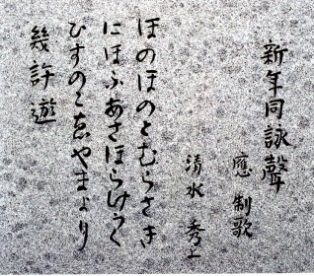 新年同詠聲
應 制歌
清水 秀
ほのほのとむらさき
にほふあさほらけうく
ひすのこゑやまより
幾許遊